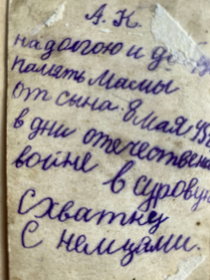 А. К.
на долгою и до
память мамы
от сына. 8 мая 43
в дни отечествен
войне в сурову
схватку
с немцами.